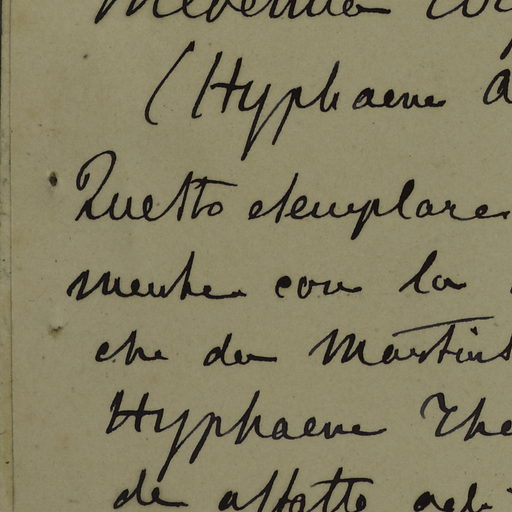 (Hyphaene
Questo esemplare
mente con la
che da Martius
Hyphaene The
de affatto